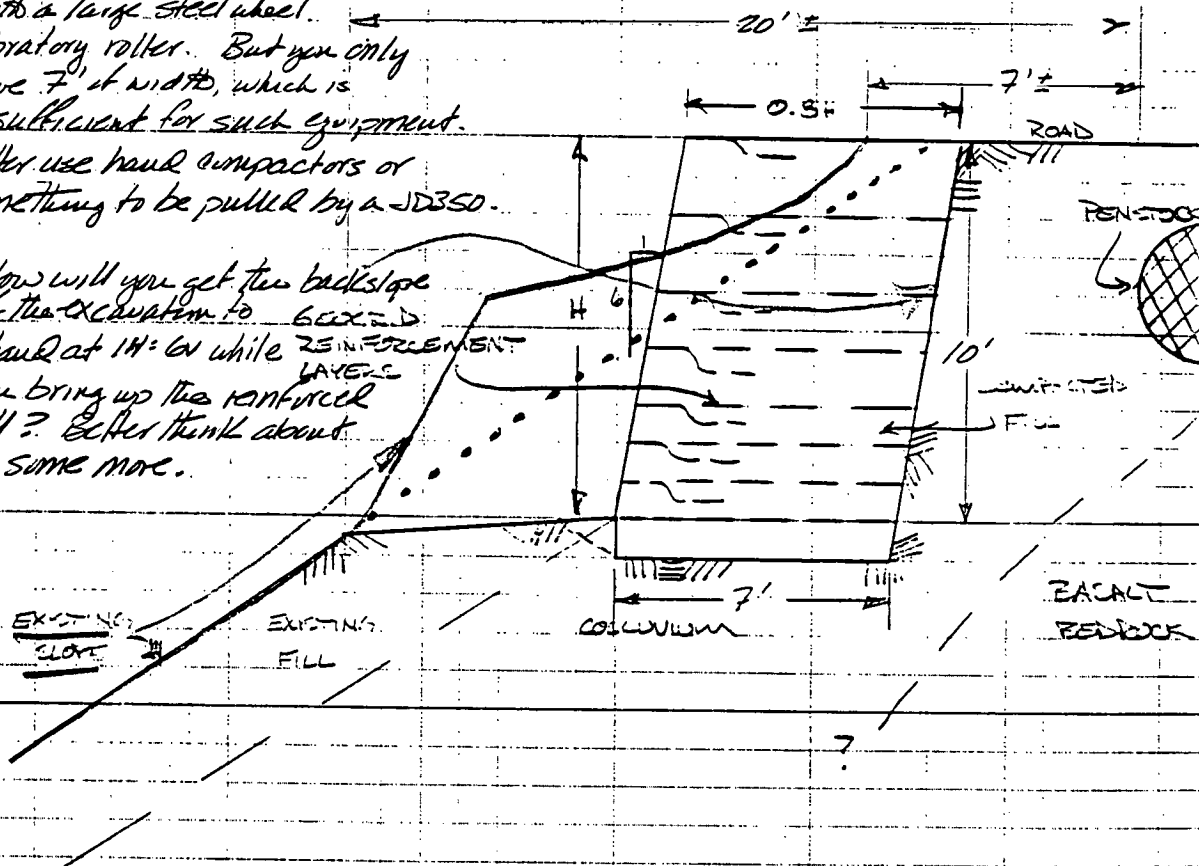 a large steel wheel
vibratory roller. But you only
7' of width, which is
sufficient for such equipment.
use hand compactors or
something to be pulled by a JD350.
How will you get the backslope
the excavation to
at 1H:6V while
bring up the reinforced
? Better think about
some more.
20' ±
7' ±
ROAD
H
1
6
REINFORCEMENT
LAYERS
10'
FILL
7'
EXISTING
SLOPE
EXISTING
FILL
COLLUVIUM
BASALT
BEDROCK
?